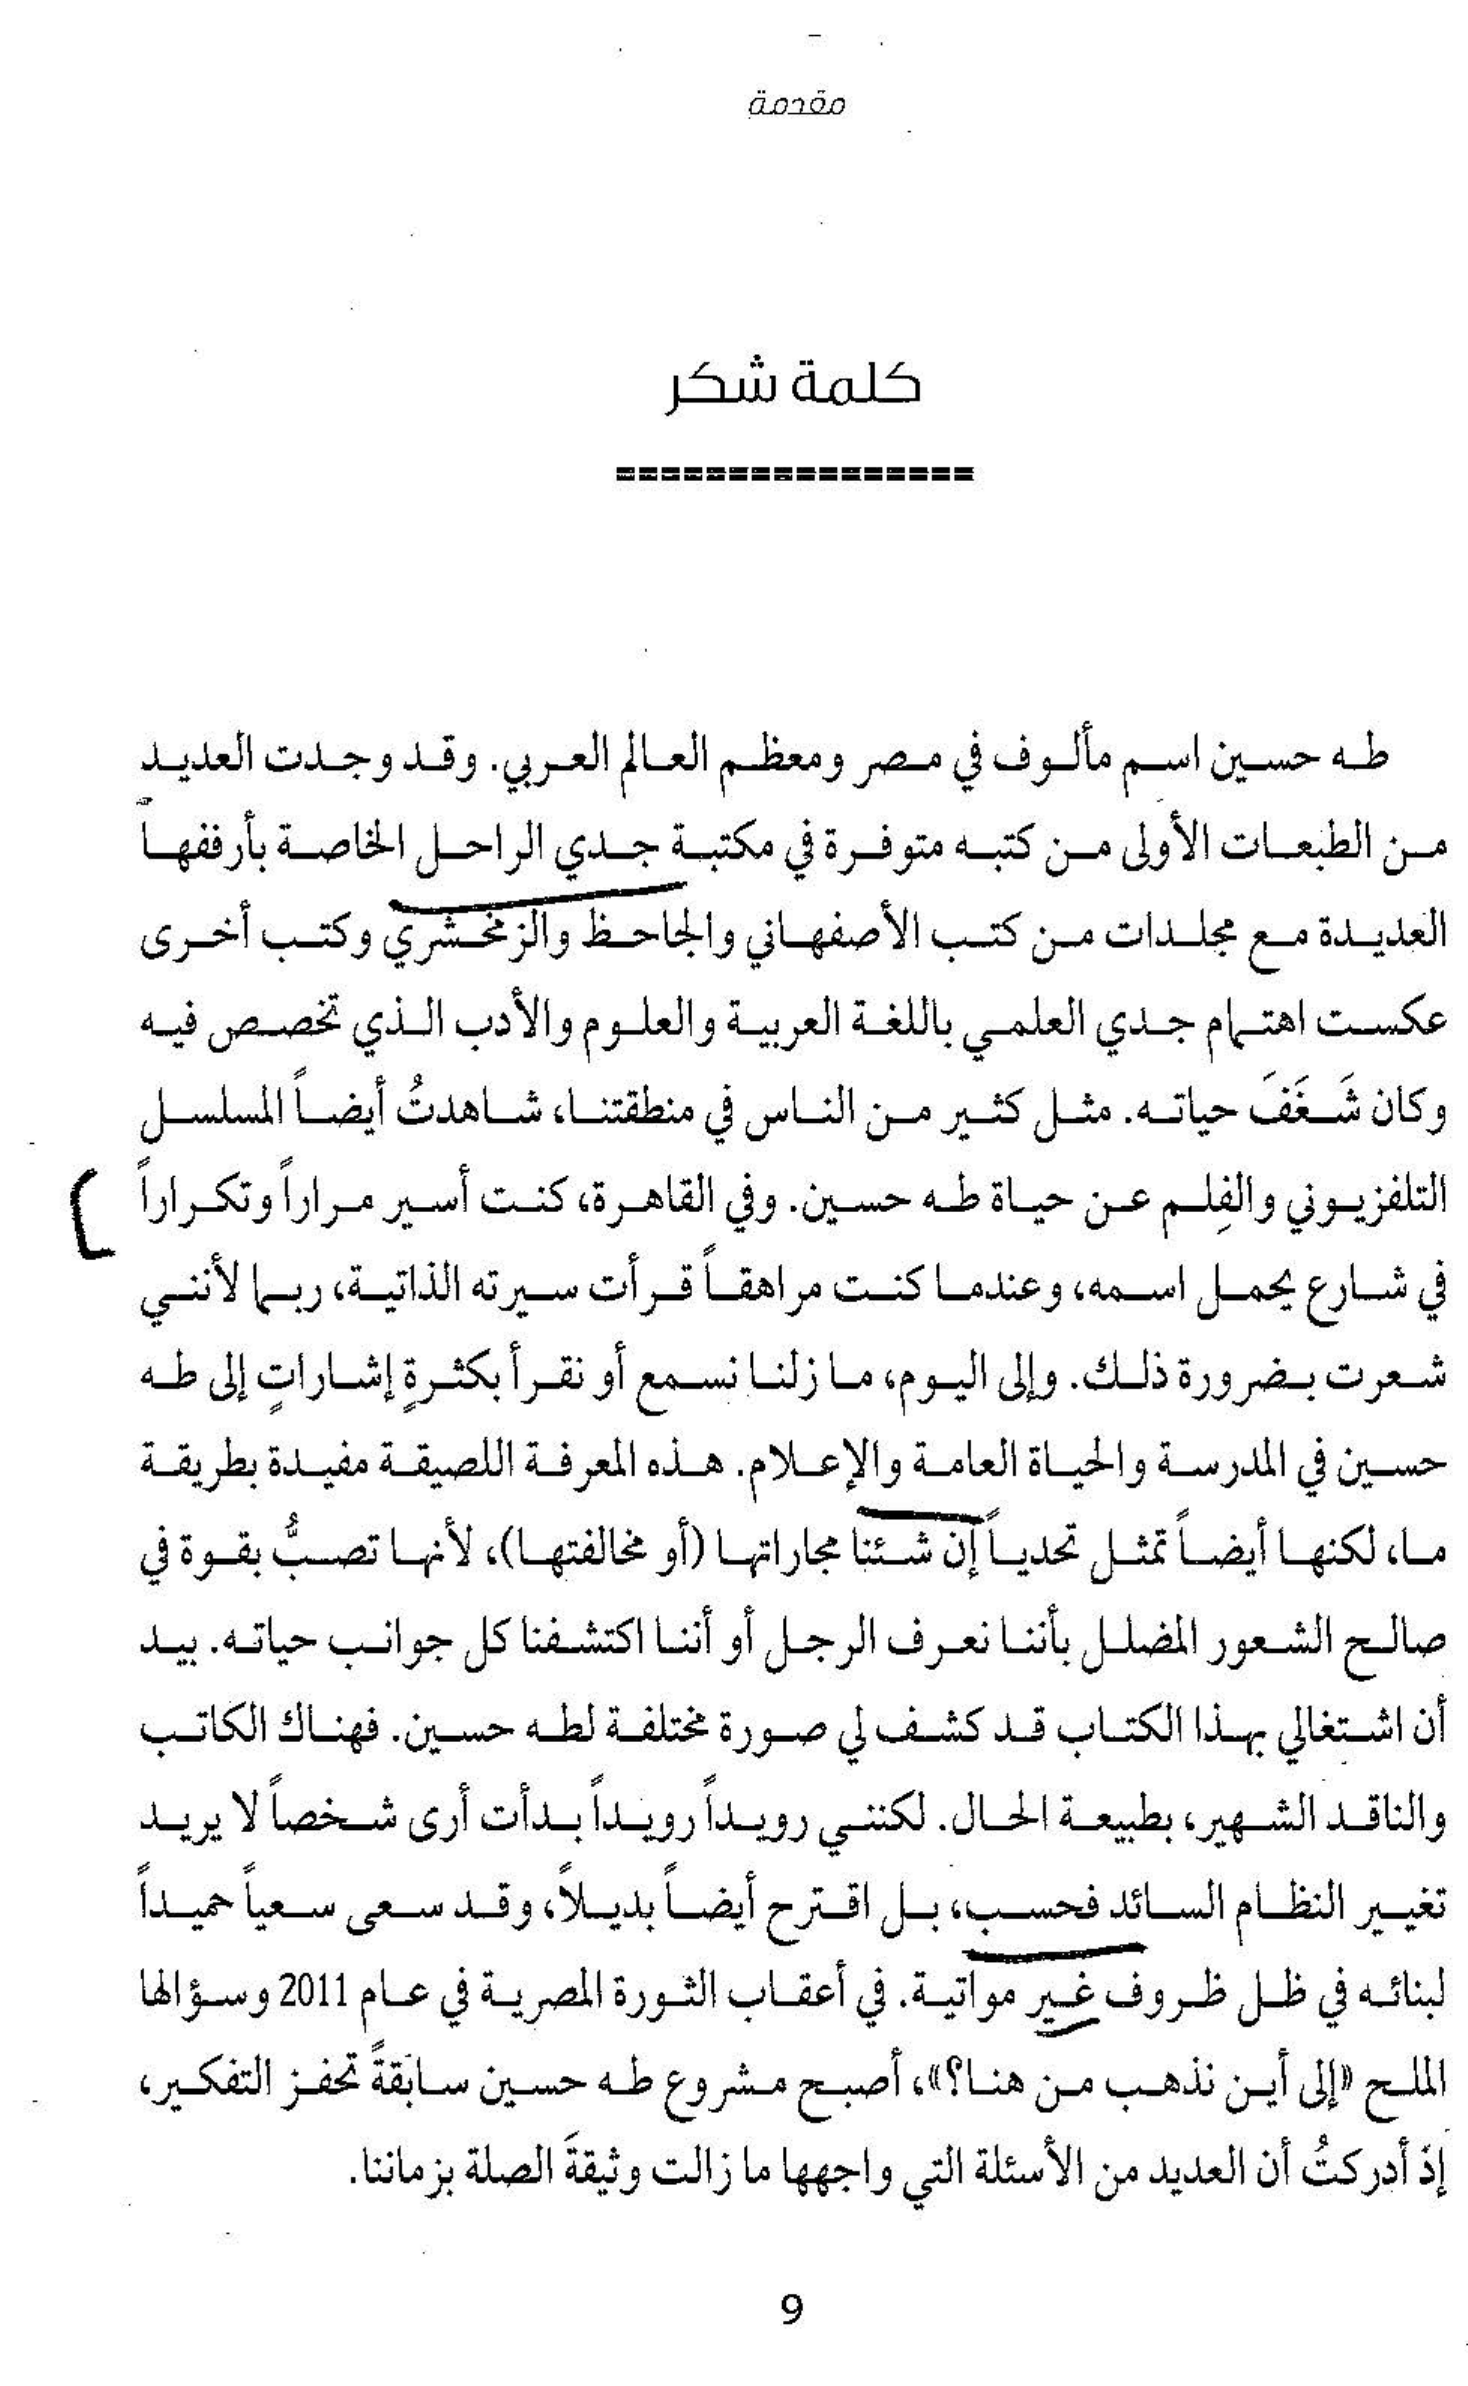 مقدمة
كلمة شكر
طه حسين اسم مألوف في مصر ومعظم العالم العربي. وقد وجدت العديد
من الطبعات الأولى من كتبه متوفرة في مكتبة جدي الراحل الخاصة بأرففها
العديدة مع مجلدات من كتب الأصفهاني والجاحظ والزمخشري وكتب أخرى
عكست اهتمام جدي العلمي باللغة العربية والعلوم والأدب الذي تخصص فيه
وكان شَغَفَ حياته. مثل كثير من الناس في منطقتنا، شاهدتُ أيضاً المسلسل
التلفزيوني والفِلم عن حياة طه حسين. وفي القاهرة، كنت أسير مراراً وتكراراً
في شارع يحمل اسمه، وعندما كنت مراهقاً قرأت سيرته الذاتية، ربما لأنني
شعرت بضرورة ذلك. وإلى اليوم، ما زلنا نسمع أو نقرأ بكثرةٍ إشاراتٍ إلى طه
حسين في المدرسة والحياة العامة والإعلام. هذه المعرفة اللصيقة مفيدة بطريقة
ما، لكنها أيضاً تمثل تحدياً إن شئنا مجاراتها (أو مخالفتها)، لأنها تصبُّ بقوة في
صالح الشعور المضلل بأننا نعرف الرجل أو أننا اكتشفنا كل جوانب حياته. بيد
أن اشتغالي بهذا الكتاب قد كشف لي صورة مختلفة لطه حسين. فهناك الكاتب
والناقد الشهير، بطبيعة الحال. لكنني رويداً رويداً بدأت أرى شخصاً لا يريد
تغيير النظام السائد فحسب، بل اقترح أيضاً بديلاً، وقد سعى سعياً حميداً
لبنائه في ظل ظروف غير مواتية. في أعقاب الثورة المصرية في عام 2011 وسؤالها
الملح «إلى أين نذهب من هنا؟»، أصبح مشروع طه حسين سابَقةً تحفز التفكير،
إذ أدركتُ أن العديد من الأسئلة التي واجهها ما زالت وثيقةَ الصلة بزماننا.
9